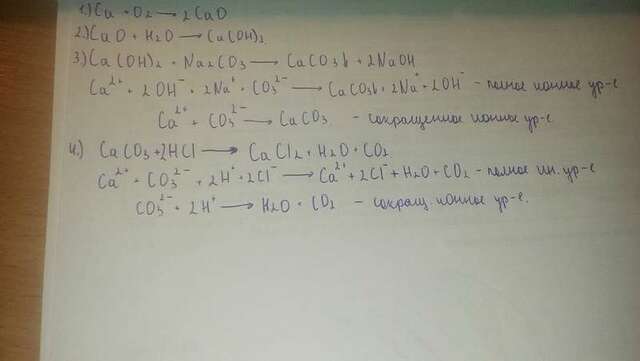 1) Ca + O₂ → 2CaO
2) CaO + H₂O → Ca(OH)₂
3) Ca(OH)₂ + Na₂CO₃ → CaCO₃↓ + 2NaOH
Ca²⁺ + 2OH⁻ + 2Na⁺ + CO₃²⁻ → CaCO₃↓ + 2Na⁺ + 2OH⁻ - полное ионное ур-е
Ca²⁺ + CO₃²⁻ → CaCO₃ - сокращенное ионное ур-е.
4) CaCO₃ + 2HCl → CaCl₂ + H₂O + CO₂
Ca²⁺ + CO₃²⁻ + 2H⁺ + 2Cl⁻ → Ca²⁺ + 2Cl⁻ + H₂O + CO₂ - полное ин. ур-е
CO₃²⁻ + 2H⁺ → H₂O + CO₂ - сокращ. ионное ур-е.